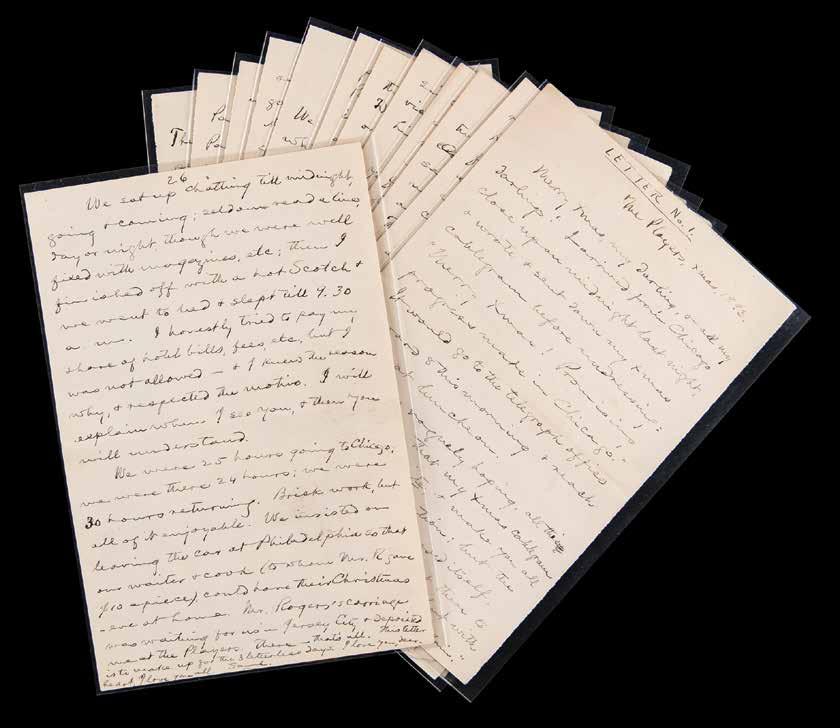 26
We sat up chatting till midnight,
going & coming; seldom read a line,
day or night, though we were well
fixed with magazines, etc; then I
finished off with a hot Scotch &
we went to bed & slept till 9.30
a. m. I honestly tried to pay my
share of hotel bills, fees, etc, but I
was not allowed — & I knew the reason
why, & respected the motive. I will
explain when I see you, & then you
will understand.
We were 25 hours going to Chicago;
we were there 24 hours; we were
30 hours returning. Brisk work, but
all of it enjoyable. We insisted on
leaving the car at Philadelphia so that
our waiter & cook (to whom Mr. R. gave
$10 apiece) could have their Christmas
-eve at home. Mr. Rogers's carriage
was waiting for us in Jersey City & deposited
me at the Players. There — that's all. This letter
is to make up for the 3 letterless days. I love you, dear
heart, I love you all. Saml.
The
Pa
Pa
go
We
wh
LETTER No. 1.
The Players, Xmas, 1893.
Merry Xmas, my darling, & all my
darlings! I arrived from Chicago
close upon midnight last night,
& wrote & sent down my Xmas
cablegram before undressing:
"Merry Xmas! Promising
progress made in Chicago."
would go to the telegraph office
8 this morning & reach
luncheon.
vaguely hoping, all the
that my Xmas cablegram
& make you all
but the
itself.
then to
with